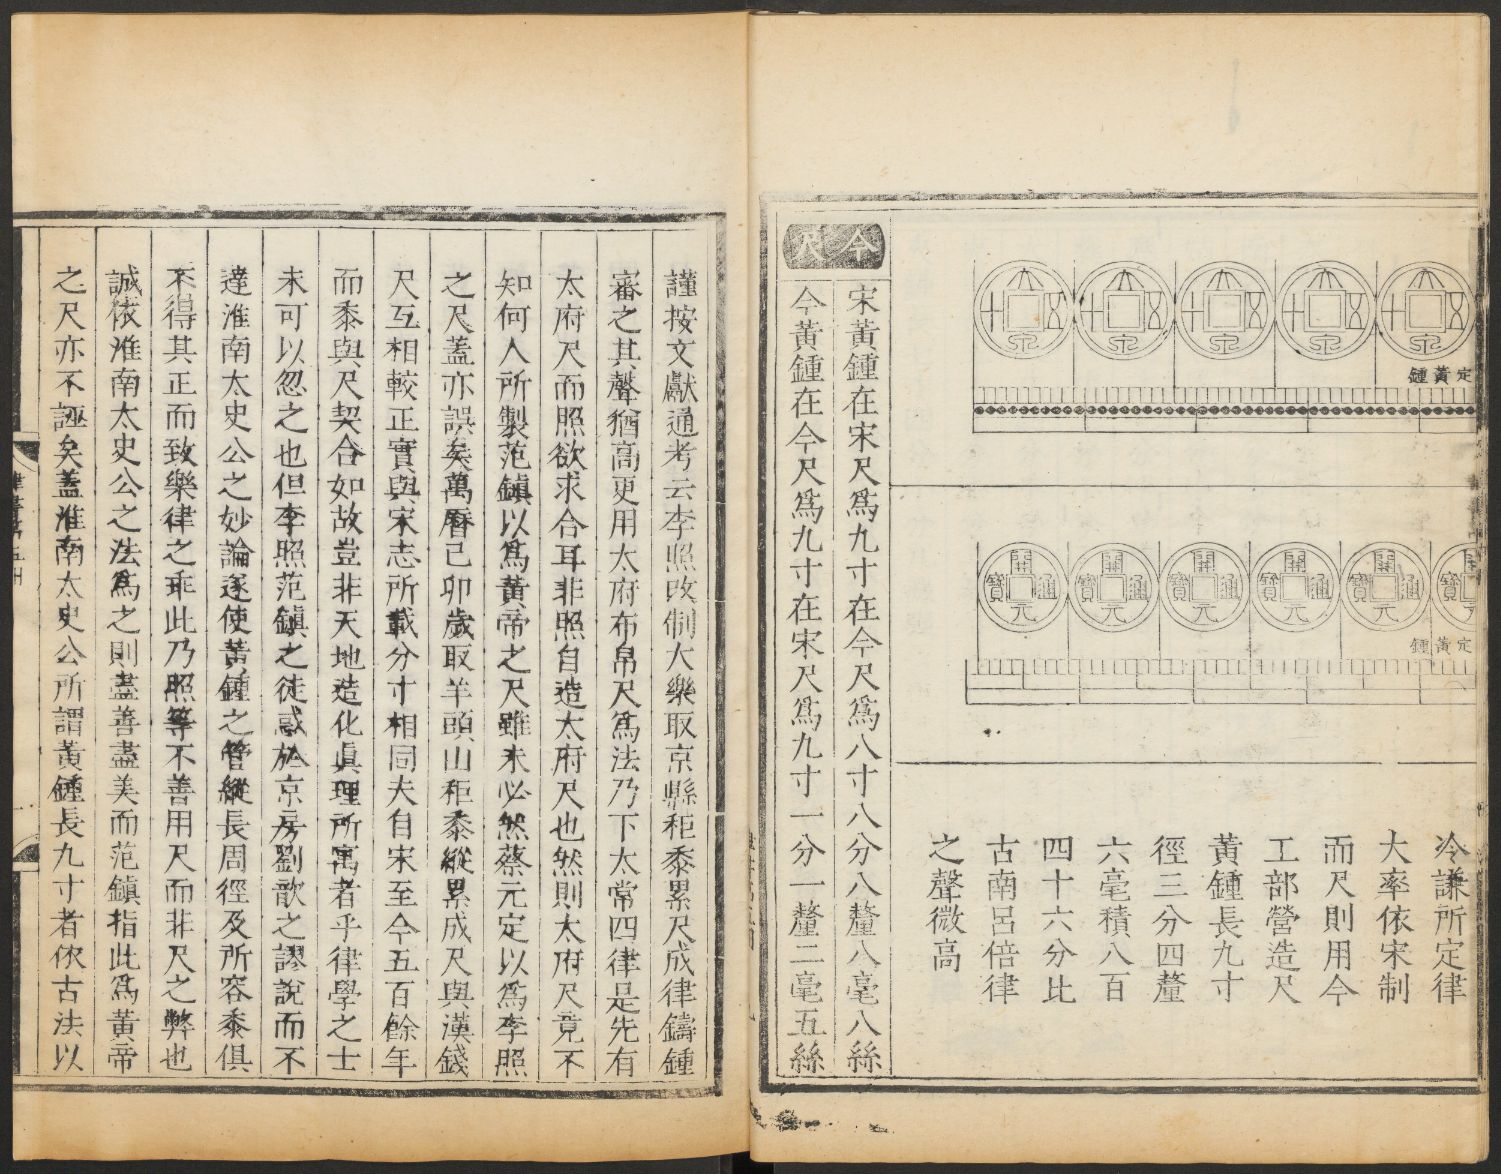 大泉五十
大泉五十
大泉五十
大泉五十
大泉五十
定黃鍾
開元通寶
開元通寶
開元通寶
開元通寶
開元通寶
開元通寶
定黃鍾
冷謙所定律
大率依宋制
而尺則用今
工部營造尺
黃鍾長九寸
徑三分四釐
六毫積八百
四十六分比
古南呂倍律
之聲微高
今尺
宋黃鍾在宋尺爲九寸在今尺爲八寸八分八釐八毫八絲
今黃鍾在今尺爲九寸在宋尺爲九寸一分一釐二毫五絲
謹按文獻通考云李照改制大樂取京縣秬黍累尺成律鑄鍾
審之其聲猶高更用太府布帛尺爲法乃下太常四律是先有
太府尺而照欲求合耳非照自造太府尺也然則太府尺竟不
知何人所製范鎮以爲黃帝之尺雖未必然蔡元定以爲李照
之尺蓋亦誤矣萬曆己卯歲取羊頭山秬黍縱累成尺與漢錢
尺互相較正實與宋志所載分寸相同夫自宋至今五百餘年
而黍與尺契合如故豈非天地造化眞理所寓者乎律學之士
未可以忽之也但李照范鎮之徒惑於京房劉歆之謬說而不
達淮南太史公之妙論遂使黃鍾之管縱長周徑及所容黍俱
不得其正而致樂律之乖此乃照等不善用尺而非尺之弊也
誠依淮南太史公之法爲之則盡善盡美而范鎮指此爲黃帝
之尺亦不誣矣蓋淮南太史公所謂黃鍾長九寸者依古法以